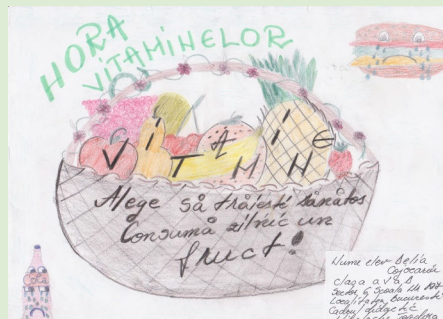 HORA
VITAMINELOR
VITAMINE
Alege să trăiești sănătos
Consumă zilnic un
fruct!
Nume elev Delia
Cojocaru
clasa a V a B
Sector 6 Școala
Localitatea București
Cadru didactic